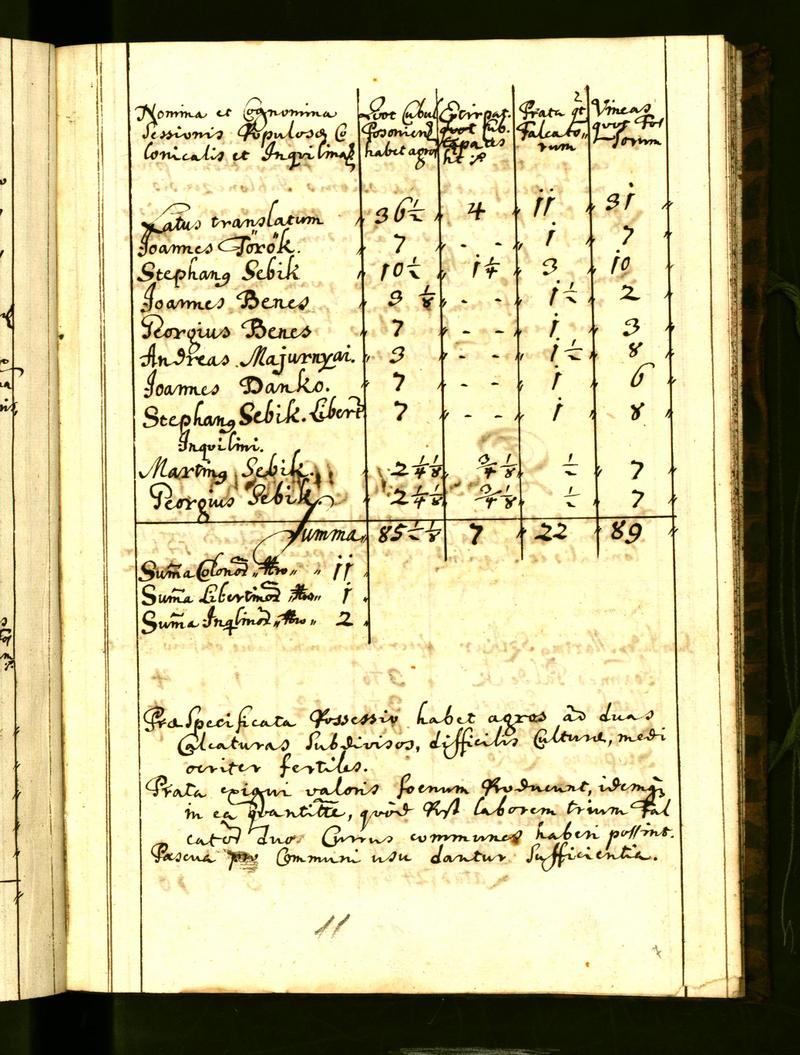 Nomina et Cognomina
Sessionis Populosæ Co
lonicalis et Inquilinaꝝ
Quot Cubul
Posoniens
habet agros
Extirpat.
quot Cub.
Prata qt
Falcato-
rum
Vineas
quot Fos
sorum
Latus translatum 36½ 4 11 31
Joannes Török. 7 - - 1 7
Stephanus Sebik 10½ 1¼ 3 10
Joannes Benes 3 ⅛ - - 1½ 2
Georgius Benes 7 - - 1 3
Andreas Majurnyai. 3 - - 1½ 8
Joannes Danko. 7 - - 1 6
Stephanus Sebik. Libert 7 - - 1 8
Inquilini.
Martinus Sebik. 2 ¼ ⅛ ¾ ⅛ ½ 7
Georgius Sebik. 2 ¼ ⅛ ¾ ⅛ ½ 7
Summa 85 ½ ⅛ 7 22 89
Suma Colonoꝝ 11
Suma Libertinoꝝ 1
Suma Inqlinoꝝ 2
Præspecificata Possessio habet agros ad duas
Calcaturas subdivisos, difficilis Culturæ, medi
ocriter fertiles.
Prata exigui valoris foenum Producunt, idemq
in ea quantitte, quod Post laborem trium Fal
catoꝝ duo Currus communes haberi possint.
Pascua pro Communi usu dantur Sufficientia.
11